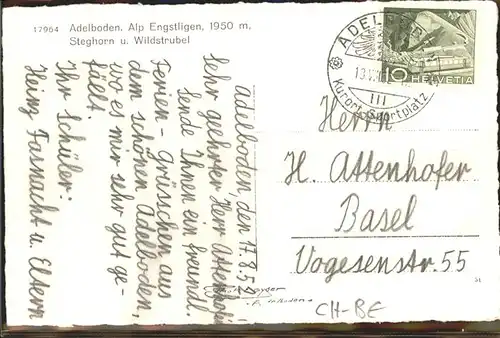 17904 Adelboden. Alp Engstligen, 1950 m,
Steghorn u. Wildstrubel
Adelboden, den 17.8.52
Sehr geehrter Herr Attenhofer
Sende Ihnen ein freundl.
Ferien-Grüschen aus
dem schönen Adelboden,
wo es mir sehr gut ge-
fällt.
Ihr Schüler:
Heinz Fasnacht u. Eltern
ADELBODEN
III
Kurort Sportplatz
10 HELVETIA
Herrn
H. Attenhofer
Basel
Vogesenstr. 55
Gyger
Adelboden
CH-BE